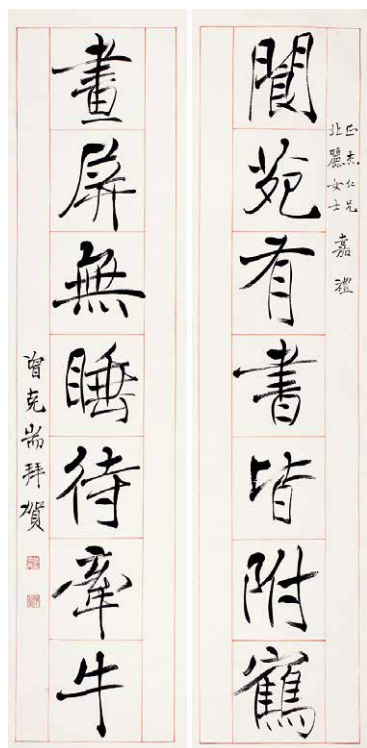 閬苑有書皆附鶴
正杰仁兄
北麗女士
嘉禮
畫屏無睡待牽牛
曾克耑拜賀